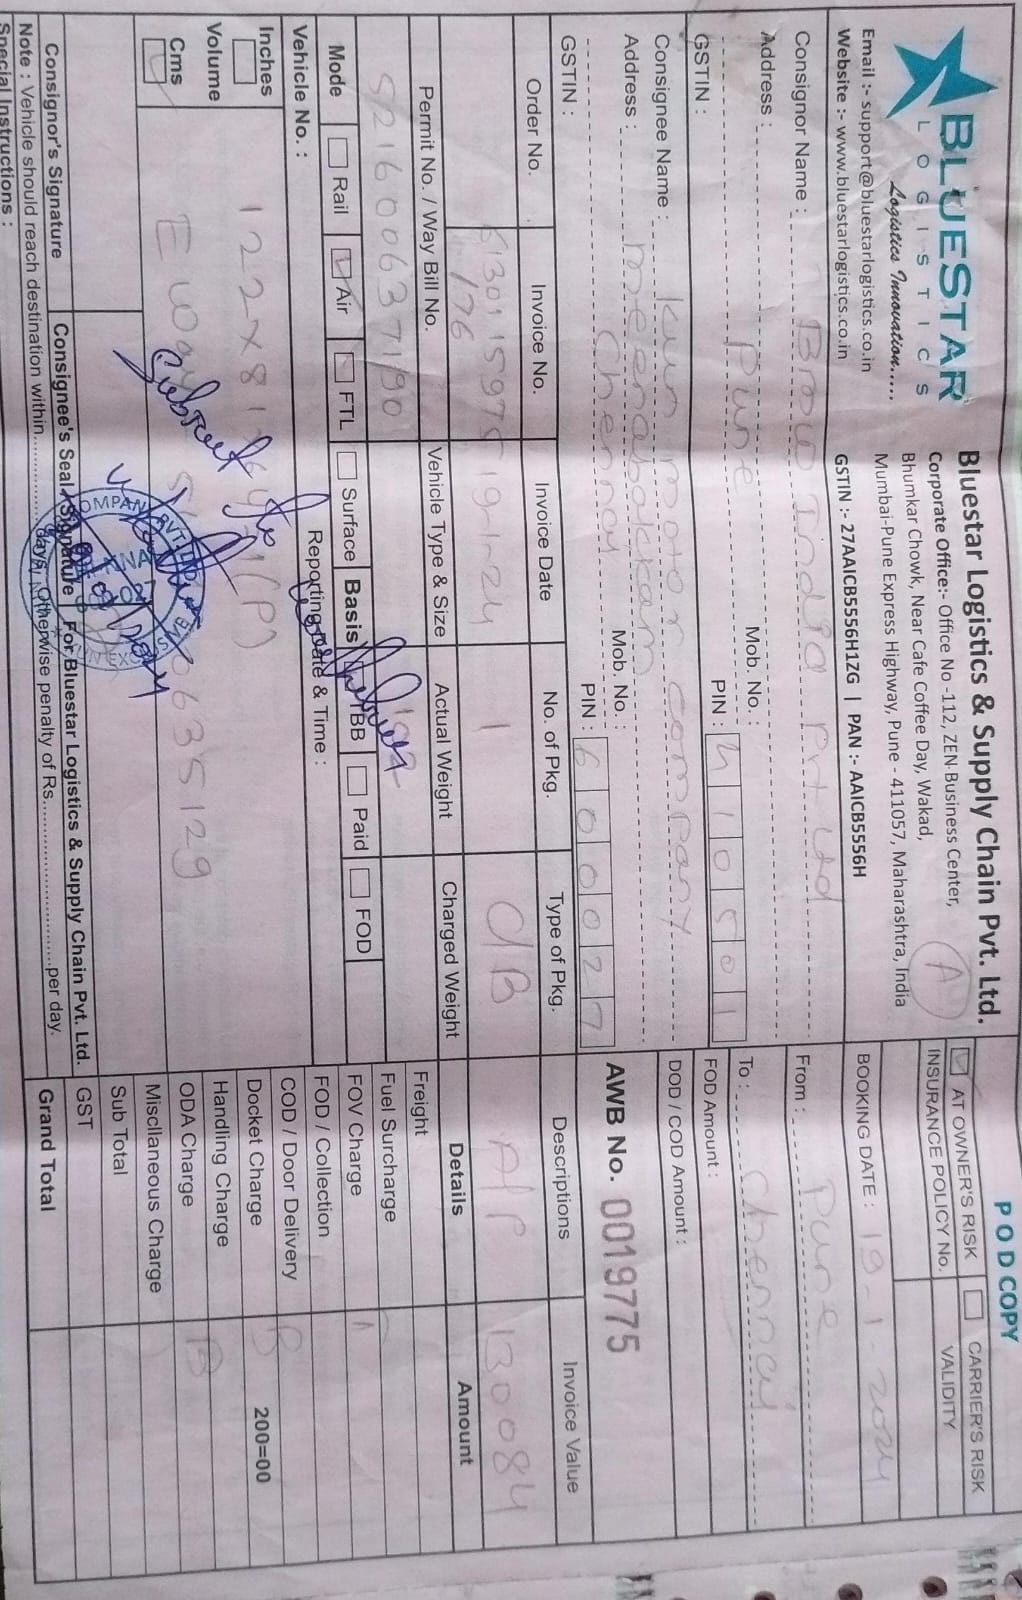 BLUESTAR
LOGISTICS
Logistics Innovation.....
Email :- support@bluestarlogistics.co.in
Website :- www.bluestarlogistics.co.in
Bluestar Logistics & Supply Chain Pvt. Ltd.
Corporate Office:- Office No -112, ZEN Business Center,
Bhumkar Chowk, Near Cafe Coffee Day, Wakad,
Mumbai-Pune Express Highway, Pune - 411057, Maharashtra, India
GSTIN :- 27AAICB5556H1ZG | PAN :- AAICB5556H
A
POD COPY
AT OWNER'S RISK
CARRIER'S RISK
INSURANCE POLICY No.
VALIDITY
BOOKING DATE : 19-1-2024
From : Pune
To : Chennai
FOD Amount :
DOD / COD Amount :
AWB No. 0019775
Consignor Name : India Pvt Ltd
Address :
Pune
Mob. No. :
PIN : 410501
GSTIN :
Consignee Name : Kun motor company
Address : meenabakkam
Chennay
Mob. No. :
PIN : 600027
GSTIN :
Order No. Invoice No. Invoice Date No. of Pkg. Type of Pkg. Descriptions Invoice Value
6130115975 19-1-24 1 C/B A/P 130084
/76
Permit No. / Way Bill No. Vehicle Type & Size Actual Weight Charged Weight Details Amount
521600637190
Mode Rail Air FTL Surface Basis TBB Paid FOD
Vehicle No. :
Reporting Date & Time :
Inches
Volume
Cms
122x81 (P)
E way 0635129
Subject to
Freight
Fuel Surcharge
FOV Charge
FOD / Collection
COD / Door Delivery
Docket Charge 200=00
Handling Charge
ODA Charge
Miscllaneous Charge
Sub Total
GST
Grand Total
Consignor's Signature
Consignee's Seal / Signature
For Bluestar Logistics & Supply Chain Pvt. Ltd.
Note : Vehicle should reach destination within.................days. Otherwise penalty of Rs.........................per day.
Special Instructions :